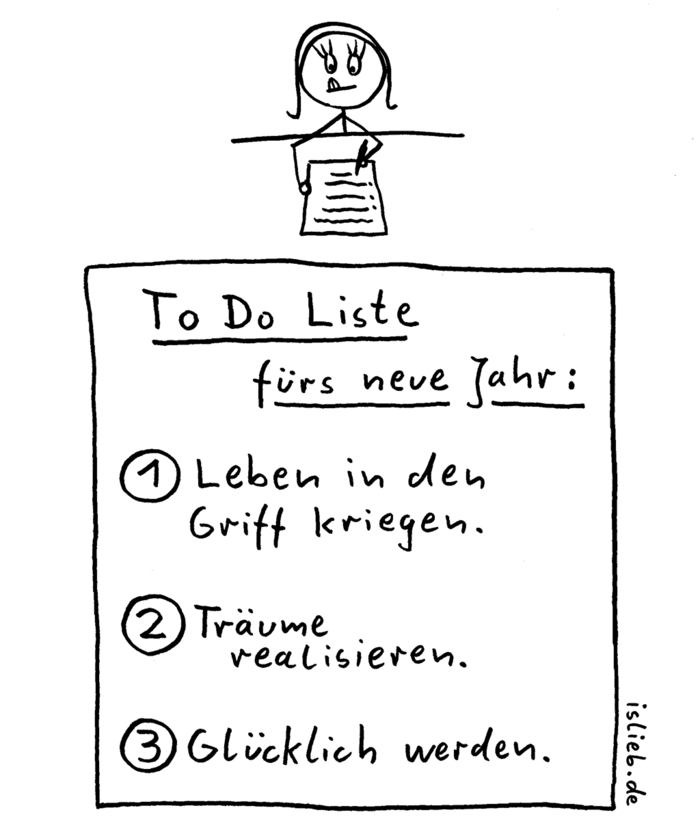 To Do Liste
fürs neue Jahr:
1 Leben in den
Griff kriegen.
2 Träume
realisieren.
3 Glücklich werden.
islieb.de